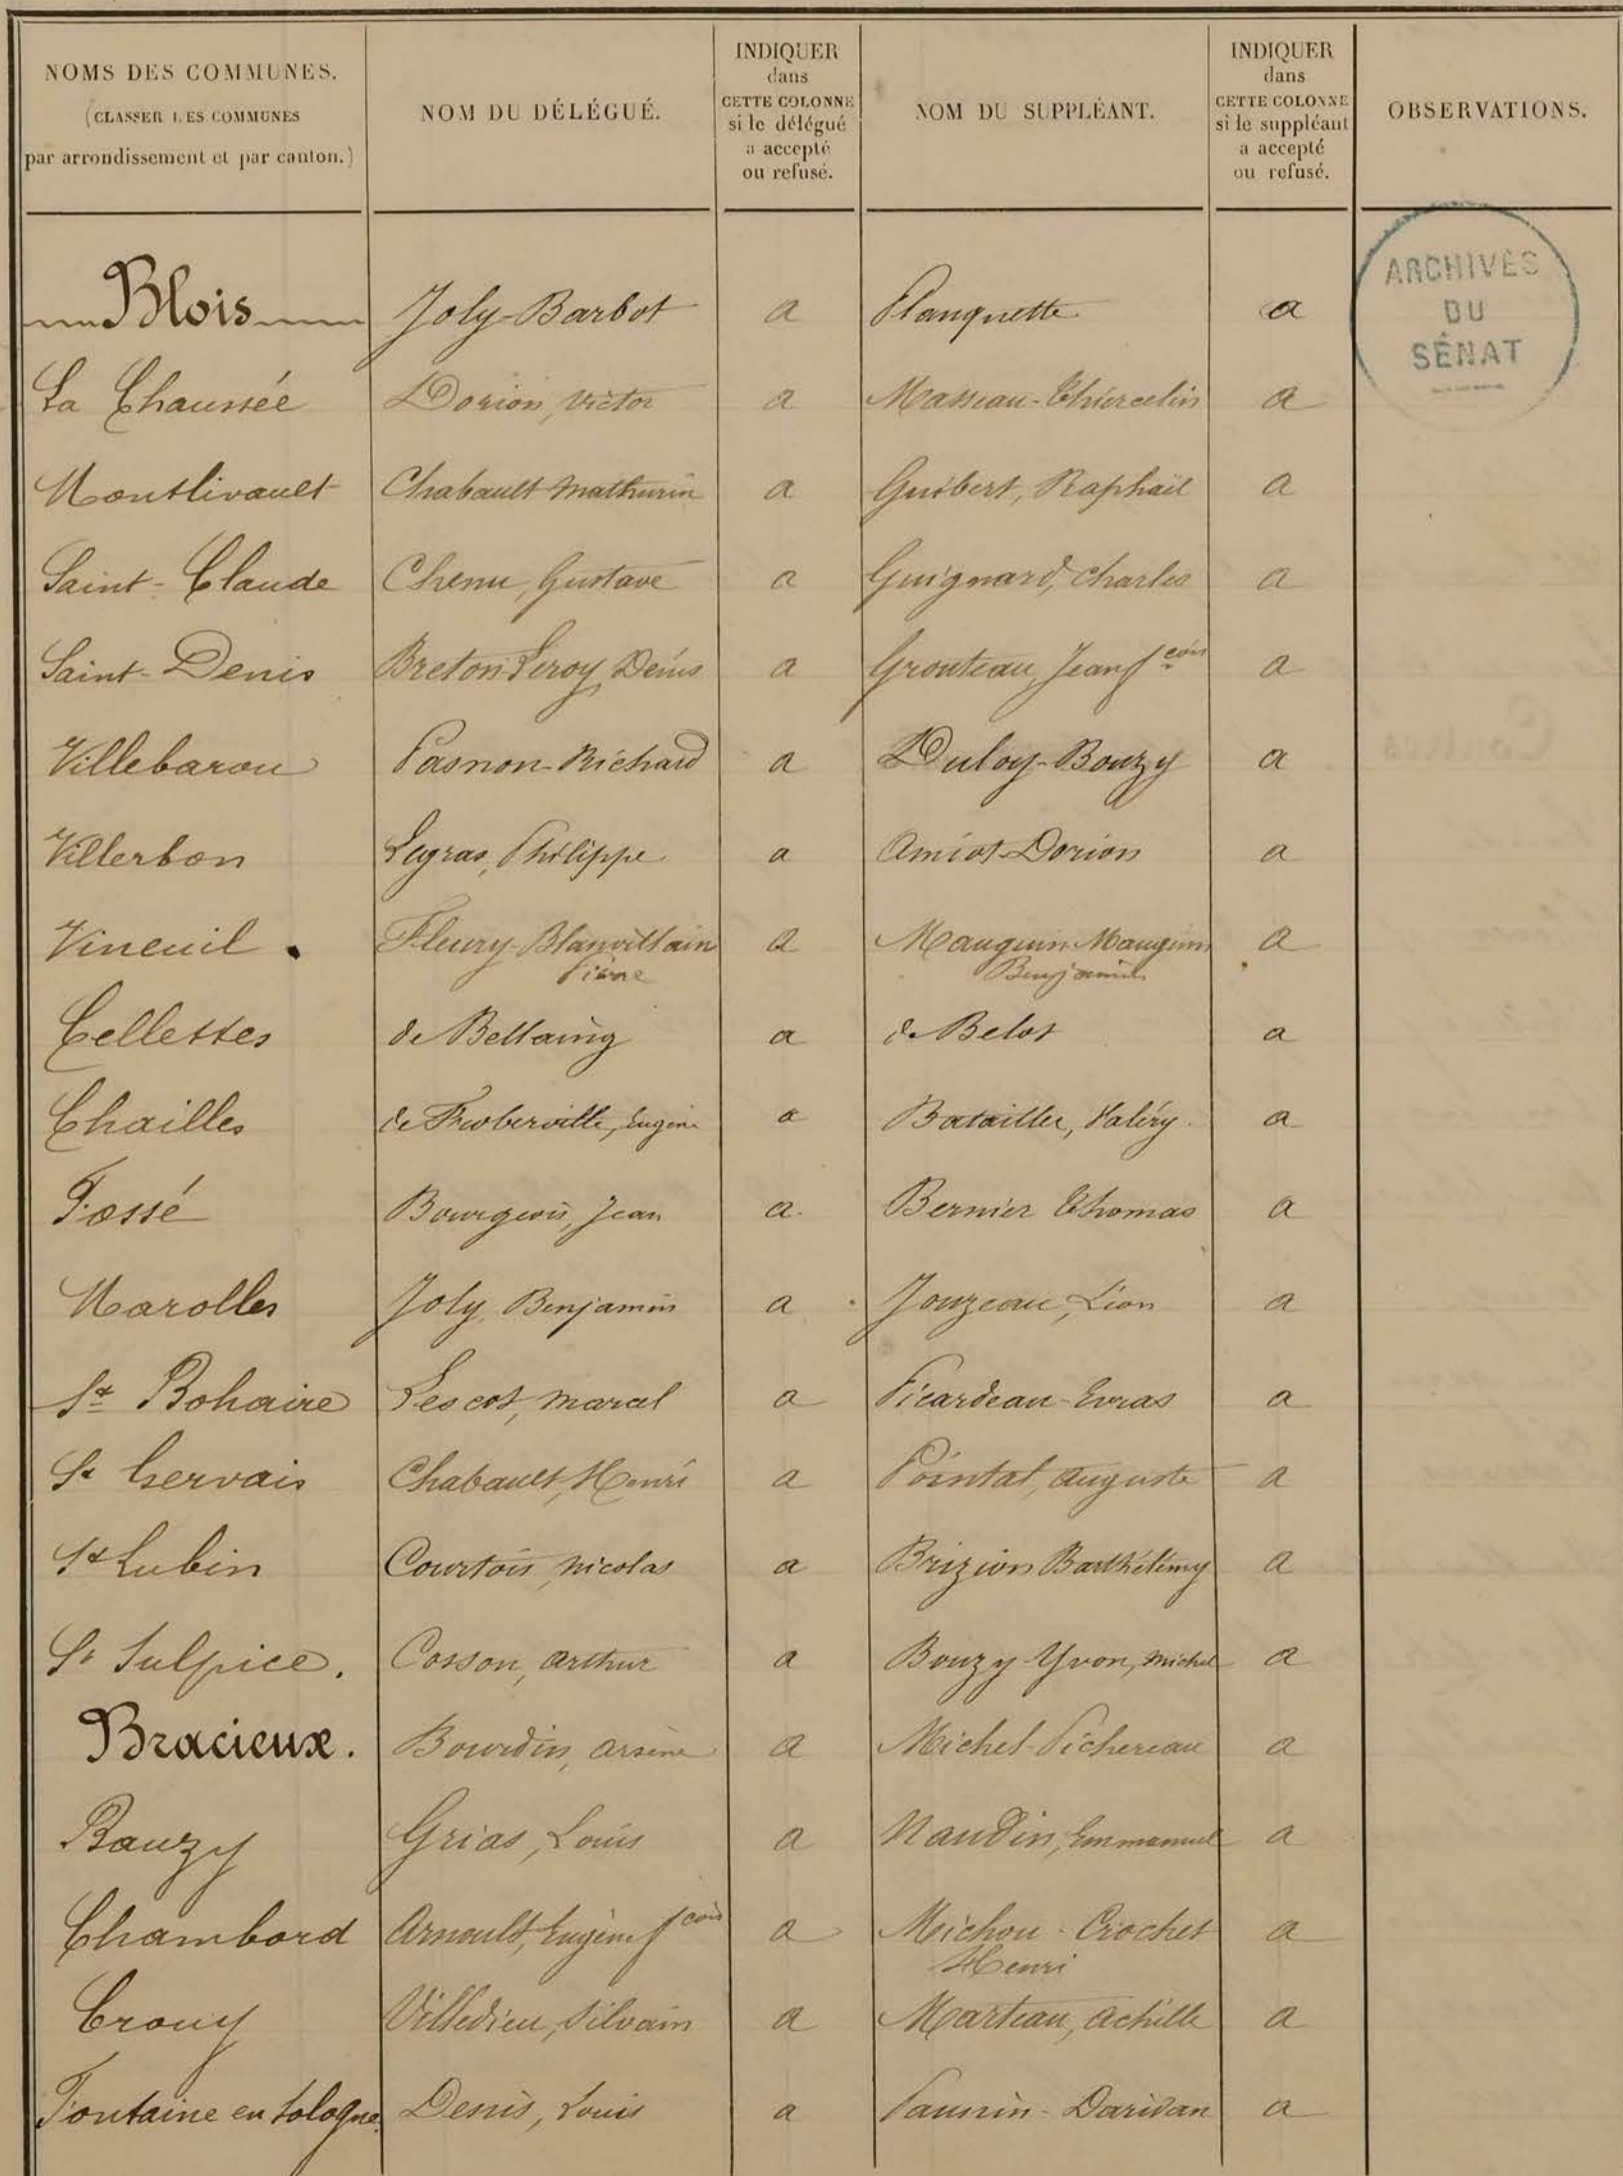 NOMS DES COMMUNES.
(CLASSER LES COMMUNES
par arrondissement et par canton.)
NOM DU DÉLÉGUÉ.
INDIQUER
dans
CETTE COLONNE
si le délégué
a accepté
ou refusé.
NOM DU SUPPLÉANT.
INDIQUER
dans
CETTE COLONNE
si le suppléant
a accepté
ou refusé.
OBSERVATIONS.
ARCHIVES
DU
SÉNAT
Blois Joly-Barbot a Planquette a
La Chaussée Dorion, Victor a Masseau-Thiercelin a
Montlivault Chabault Mathurin a Guibert, Raphaël a
Saint-Claude Chenu, Gustave a Guignard, Charles a
Saint-Denis Breton-Leroy, Denis a Grouteau, Jean fcois a
Villebarou Pasnon-Richard a Duloy-Bouzy a
Villerbon Legras, Philippe a Amiot-Dorion a
Vineuil Fleury-Blanvillain a Mauguin-Mauguin a
Pierre Benjamin
Cellettes de Bellaing a de Belot a
Chailles de Froberville, Eugène a Batailler, Valéry. a
Fossé Bourgeois, Jean a. Bernier Thomas a
Marolles Joly, Benjamin a Jouzeau, Léon a
St Bohaire Lescot, Marcel a Picardeau-Evras a
St Gervais Chabault, Henri a Pointat, Auguste a
St Lubin Courtois, Nicolas a Brizion Barthélémy a
St Sulpice. Cosson, Arthur a Bouzy-Yvon, Michel a
Bracieux. Bourdin, Arsène a Michel-Pichereau a
Bauzy Grias, Louis a Naudin, Emmanuel a
Chambord Arnoult, Eugène fcois a Michou-Crochet a
Henri
Crouy Villedieu, Silvain a Marteau, Achille a
Fontaine en Sologne Denis, Louis a Daridan a